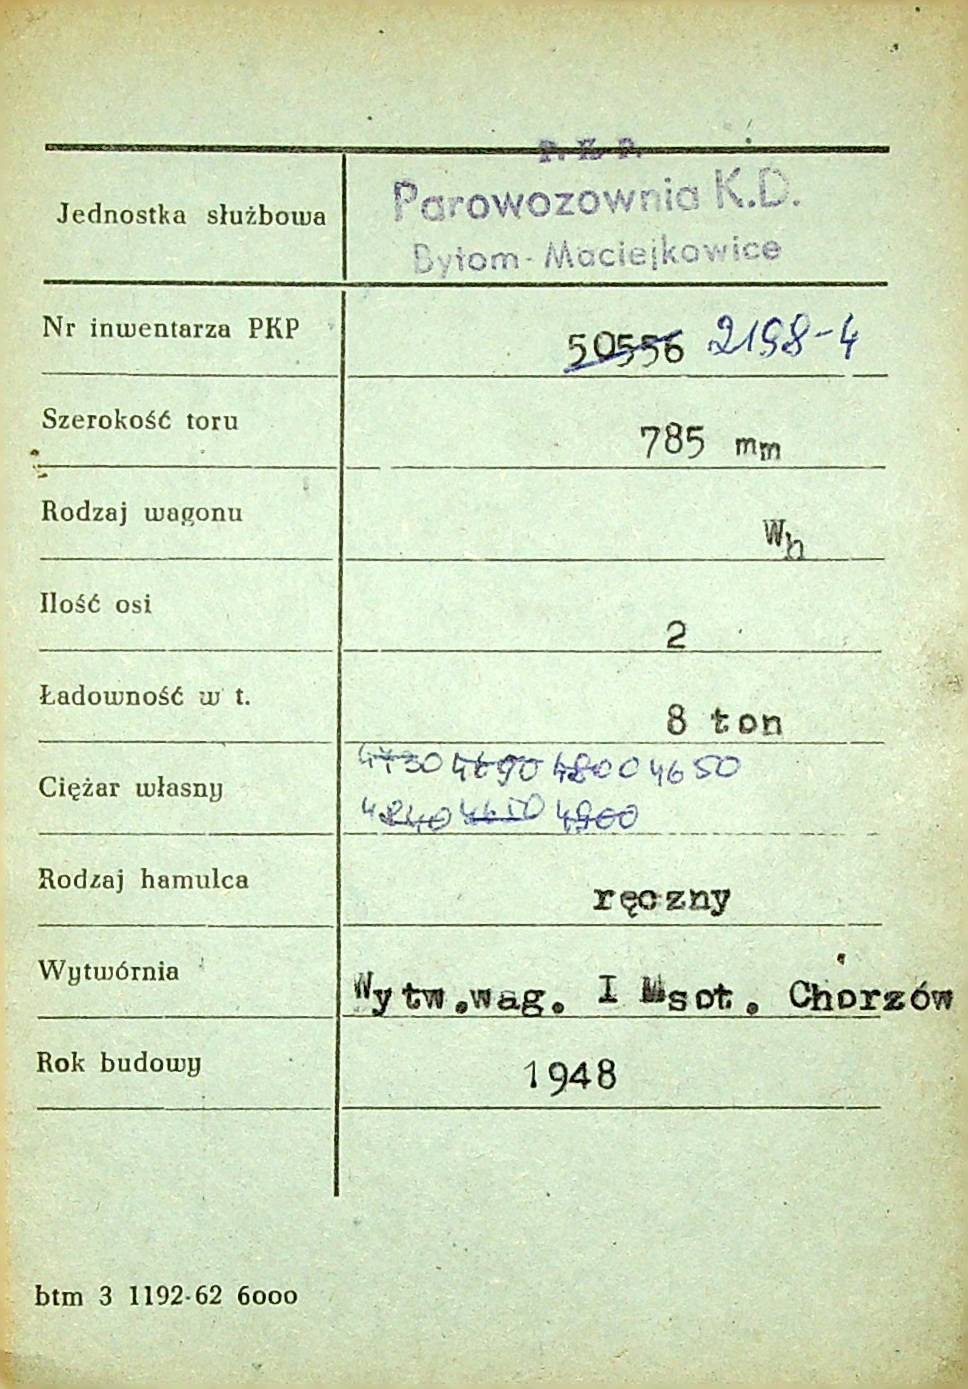 P. K P.
Jednostka służbowa Parowozownia K.D.
Bytom-Maciejkowice
Nr inwentarza PKP 50556 2198-4
Szerokość toru 785 mm
Rodzaj wagonu Wh
Ilość osi 2
Ładowność w t. 8 ton
Ciężar własny 4730 4690 4800 4650
4840 4650 4900
Rodzaj hamulca ręczny
Wytwórnia Wytw.wag. I Msot. Chorzów
Rok budowy 1948
btm 3 1192-62 6000